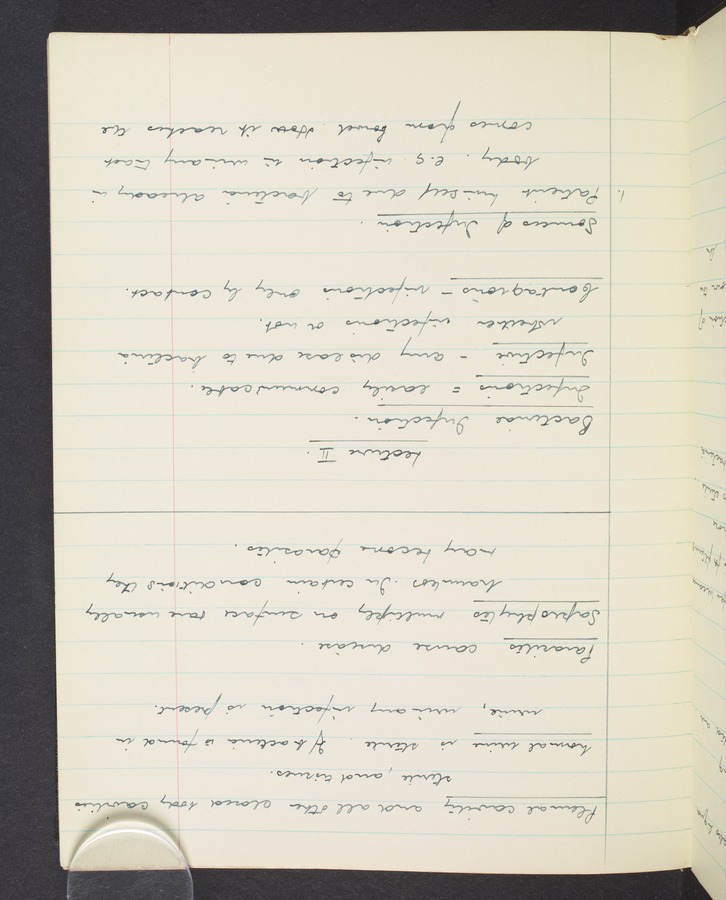 Pleural cavity and all other closed body cavities
sterile, and tissues.
Normal urine is sterile. If bacteria is found in
urine, urinary infection is present.
Parasites cause disease.
Saprophytes multiply on surface & are usually
harmless. In certain conditions they
may become parasites.
Lecture II.
Bacterial Infection.
Infectious = easily communicable.
Infective - any disease due to bacteria
whether infectious or not.
Contagious - infectious only by contact.
Sources of Infection.
1. Patient himself due to bacteria already in
body. e.g. infection in urinary tract
comes from bowel. How it reaches the